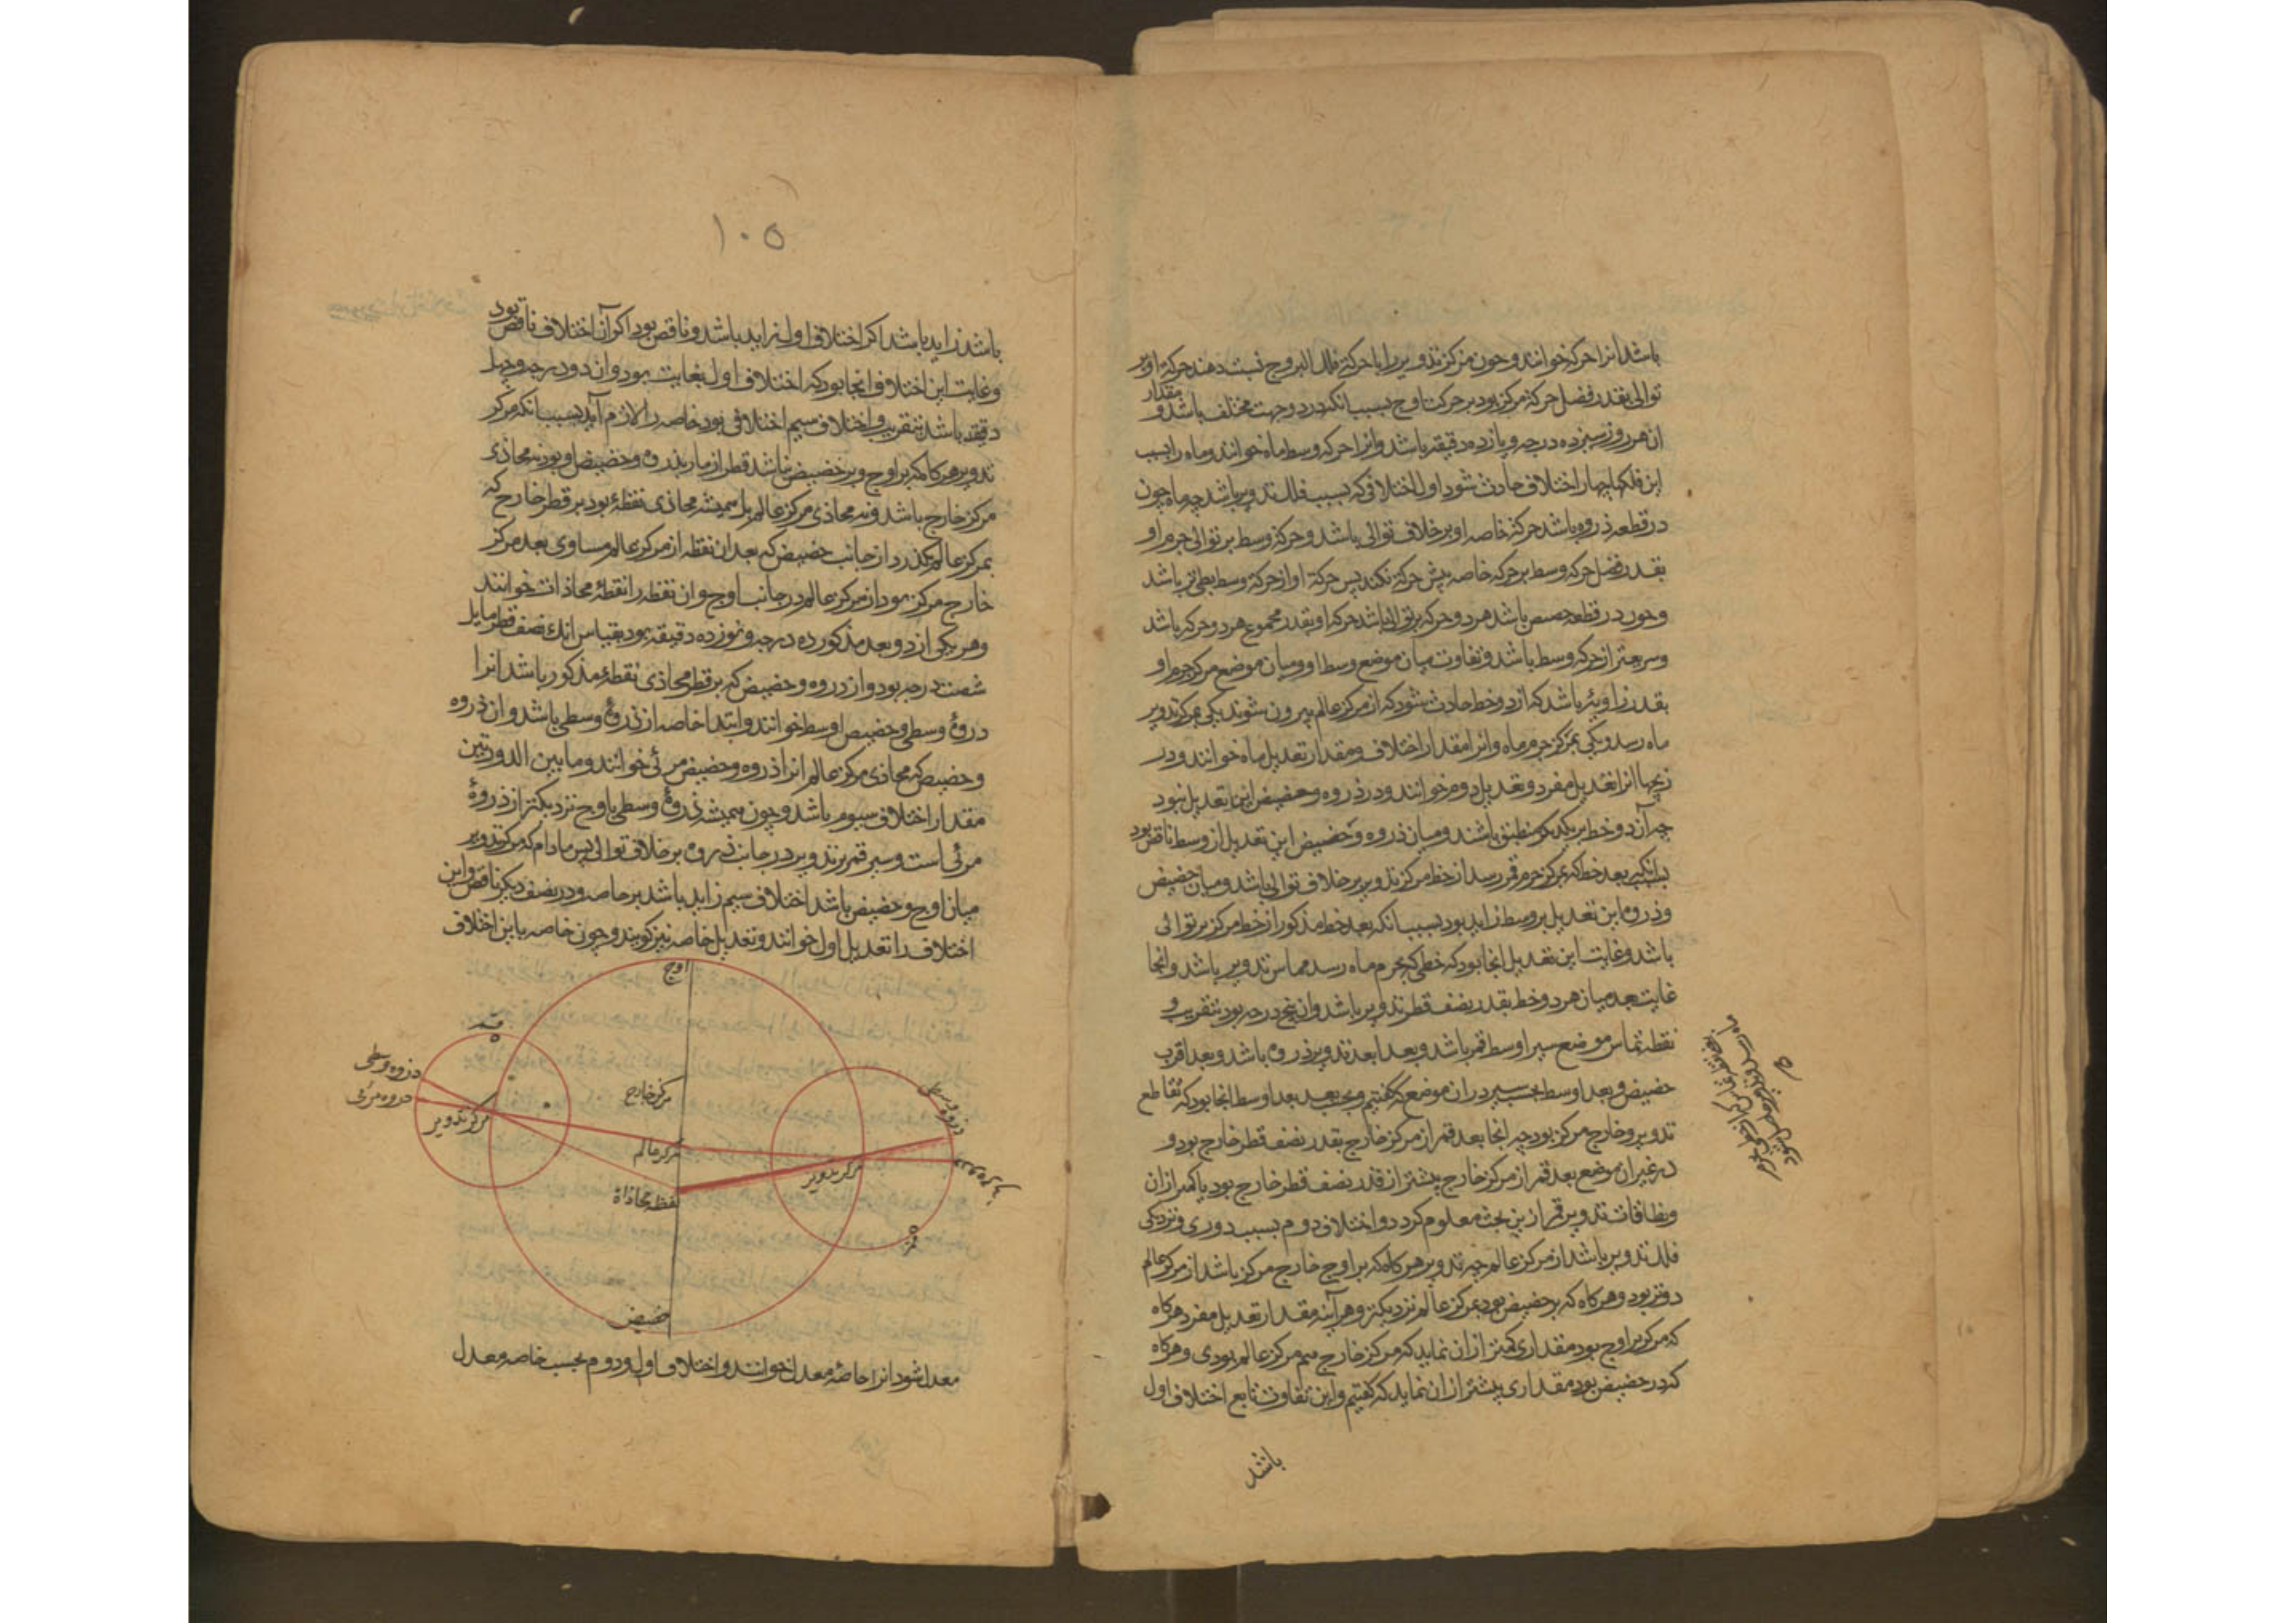 باشد انرا حرکة خوانند و چون مرکز تدویر را با حرکة فلك البروج نسبت دهند حرکة او بر
توالی بقدر فضل حرکة مرکز بود بر حرکت اوج بسبب انکه در دو جهت مختلف باشد و مقدار
ان هر روز سیزده درجه و یازده دقیقه باشد و انرا حرکه وسط ماه خوانند و ماه را بسبب
این فلکها چهار اختلاف حادث شود اول اختلافی که بسبب فلك تدویر باشد چه ماه چون
در قطعه ذروه باشد حرکة خاصه او بر خلاف توالی باشد و حرکة وسط بر توالی جرم او
بقدر فضل حرکه وسط بر حرکه خاصه پیش حرکة نکند پس حرکة او از حرکة وسط بطی تر باشد
و چون در قطعه حضیض باشد هر دو حرکه بر توالی باشد حرکه او بقدر مجموع هر دو حرکه باشد
و سریعتر از حرکه وسط باشد و تفاوت میان موضع وسط او و میان موضع مرکز جرم او
بقدر زاویئه باشد که از دو خط حادث شود که از مرکز عالم بیرون شوند یکی بمرکز تدویر
ماه رسد و یکی بمرکز جرم ماه و انرا مقدار اختلاف و مقدار تعدیل ماه خوانند و در
زیجها انرا تعدیل مفرد و تعدیل دوم خوانند و در ذروه و حضیض این تعدیل نبود
چه آن دو خط بر یکدیکر منطبق باشند و میان ذروه و حضیض این تعدیل از وسط ناقص بود
بسبب انکه بعد خط که بمرکز جرم قمر رسد از خط مرکز تدویر بر خلاف توالی باشد و میان حضیض
و ذروه این تعدیل بر وسط زاید بود بسبب انکه بعد خط مذکور از خط مرکز بر توالی
باشد و غایت این تعدیل انجا بود که خطی که بجرم ماه رسد مماس تدویر باشد و انجا
غایت بعد میان هر دو خط بقدر نصف قطر تدویر باشد و ان پنج درجه بود بتقریب و
نقطه تماس موضع سیر اوسط قمر باشد و بعد ابعد تدویر ذروه باشد و بعد اقرب
حضیض و بعد اوسط بحسب سیر در ان موضع که کفتیم و بحسب بعد بعد اوسط انجا بود که تقاطع
تدویر و خارج مرکز بود چه انجا بعد قمر از مرکز خارج بقدر نصف قطر خارج بود و
در غیر ان موضع بعد قمر از مرکز خارج بیشتر از قدر نصف قطر خارج بود یا کمتر از ان
و نطاقات تدویر قمر ازین بحث معلوم کردد و اختلاف دوم بسبب دوری و نزدیکی
فلك تدویر باشد از مرکز عالم چه تدویر هر کاه که بر اوج خارج مرکز باشد از مرکز عالم
دورتر بود و هر کاه که بر حضیض بود بمرکز عالم نزدیکتر و هر آینه مقدار تعدیل مفرد هر کاه
که مرکز بر اوج بود مقداری کمتر از ان نماید که مرکز خارج هم مرکز عالم بودی و هر کاه
که در حضیض بود مقداری بیشتر از ان نماید که کفتیم و این تفاوت تابع اختلاف اول
باشد
۱۰۵
باشد زاید باشد اکر اختلاف اول زاید باشد و ناقص بود اکر آن اختلاف ناقص بود
و غایت این اختلاف انجا بود که اختلاف اول بغایت بود و ان دو درجه و چهل
دقیقه باشد بتقریب و اختلاف سیم اختلافی بود خاصه را لازم آید بسبب انکه مرکز
تدویر هر کاه که بر اوج و بر حضیض نباشد قطر از مار بذروه و حضیض او بود نه محاذی
مرکز خارج باشد و نه محاذی مرکز عالم بل همیشه محاذی نقطۀ بود بر قطر خارج که
بمرکز عالم بکذرد از جانب حضیض که بعد ان نقطه از مرکز عالم مساوی بعد مرکز
خارج مرکز بود از مرکز عالم در جانب اوج و ان نقطه را نقطۀ محاذات خوانند
و هر یکی از دو بعد مذکور ده درجه و نوزده دقیقه بود بقیاس انك نصف قطر مایل
شصت درجه بود و از ذروه و حضیض که بر قطر محاذی نقطۀ مذکور باشد انرا
ذروۀ وسطی و حضیض اوسط خوانند و ابتدا خاصه از ذروۀ وسطی باشد و ان ذروه
و حضیض که محاذی مرکز عالم انرا ذروه و حضیض مرئی خوانند و ما بین الذروتین
مقدار اختلاف سیوم باشد و چون همیشه ذروۀ وسطی باوج نزدیکتر از ذروۀ
مرئی است و سیر قمر بر تدویر در جانب ذروه بر خلاف توالی پس مادام که مرکز تدویر
میان اوج و حضیض باشد اختلاف سیم زاید باشد بر خاصه و در نصف دیکر ناقص و این
اختلاف را تعدیل اول خوانند و تعدیل خاصه نیز کویند و چون خاصه باین اختلاف
اوج
ذروه وسطی
ذروه مرئی
مرکز تدویر
مرکز خارج
مرکز عالم
نقطه محاذاة
مرکز تدویر
ذروه وسطی
ذروه مرئی
حضیض
معدل شود انرا خاصۀ معدل خوانند و اختلاف اول و دوم بحسب خاصه معدل